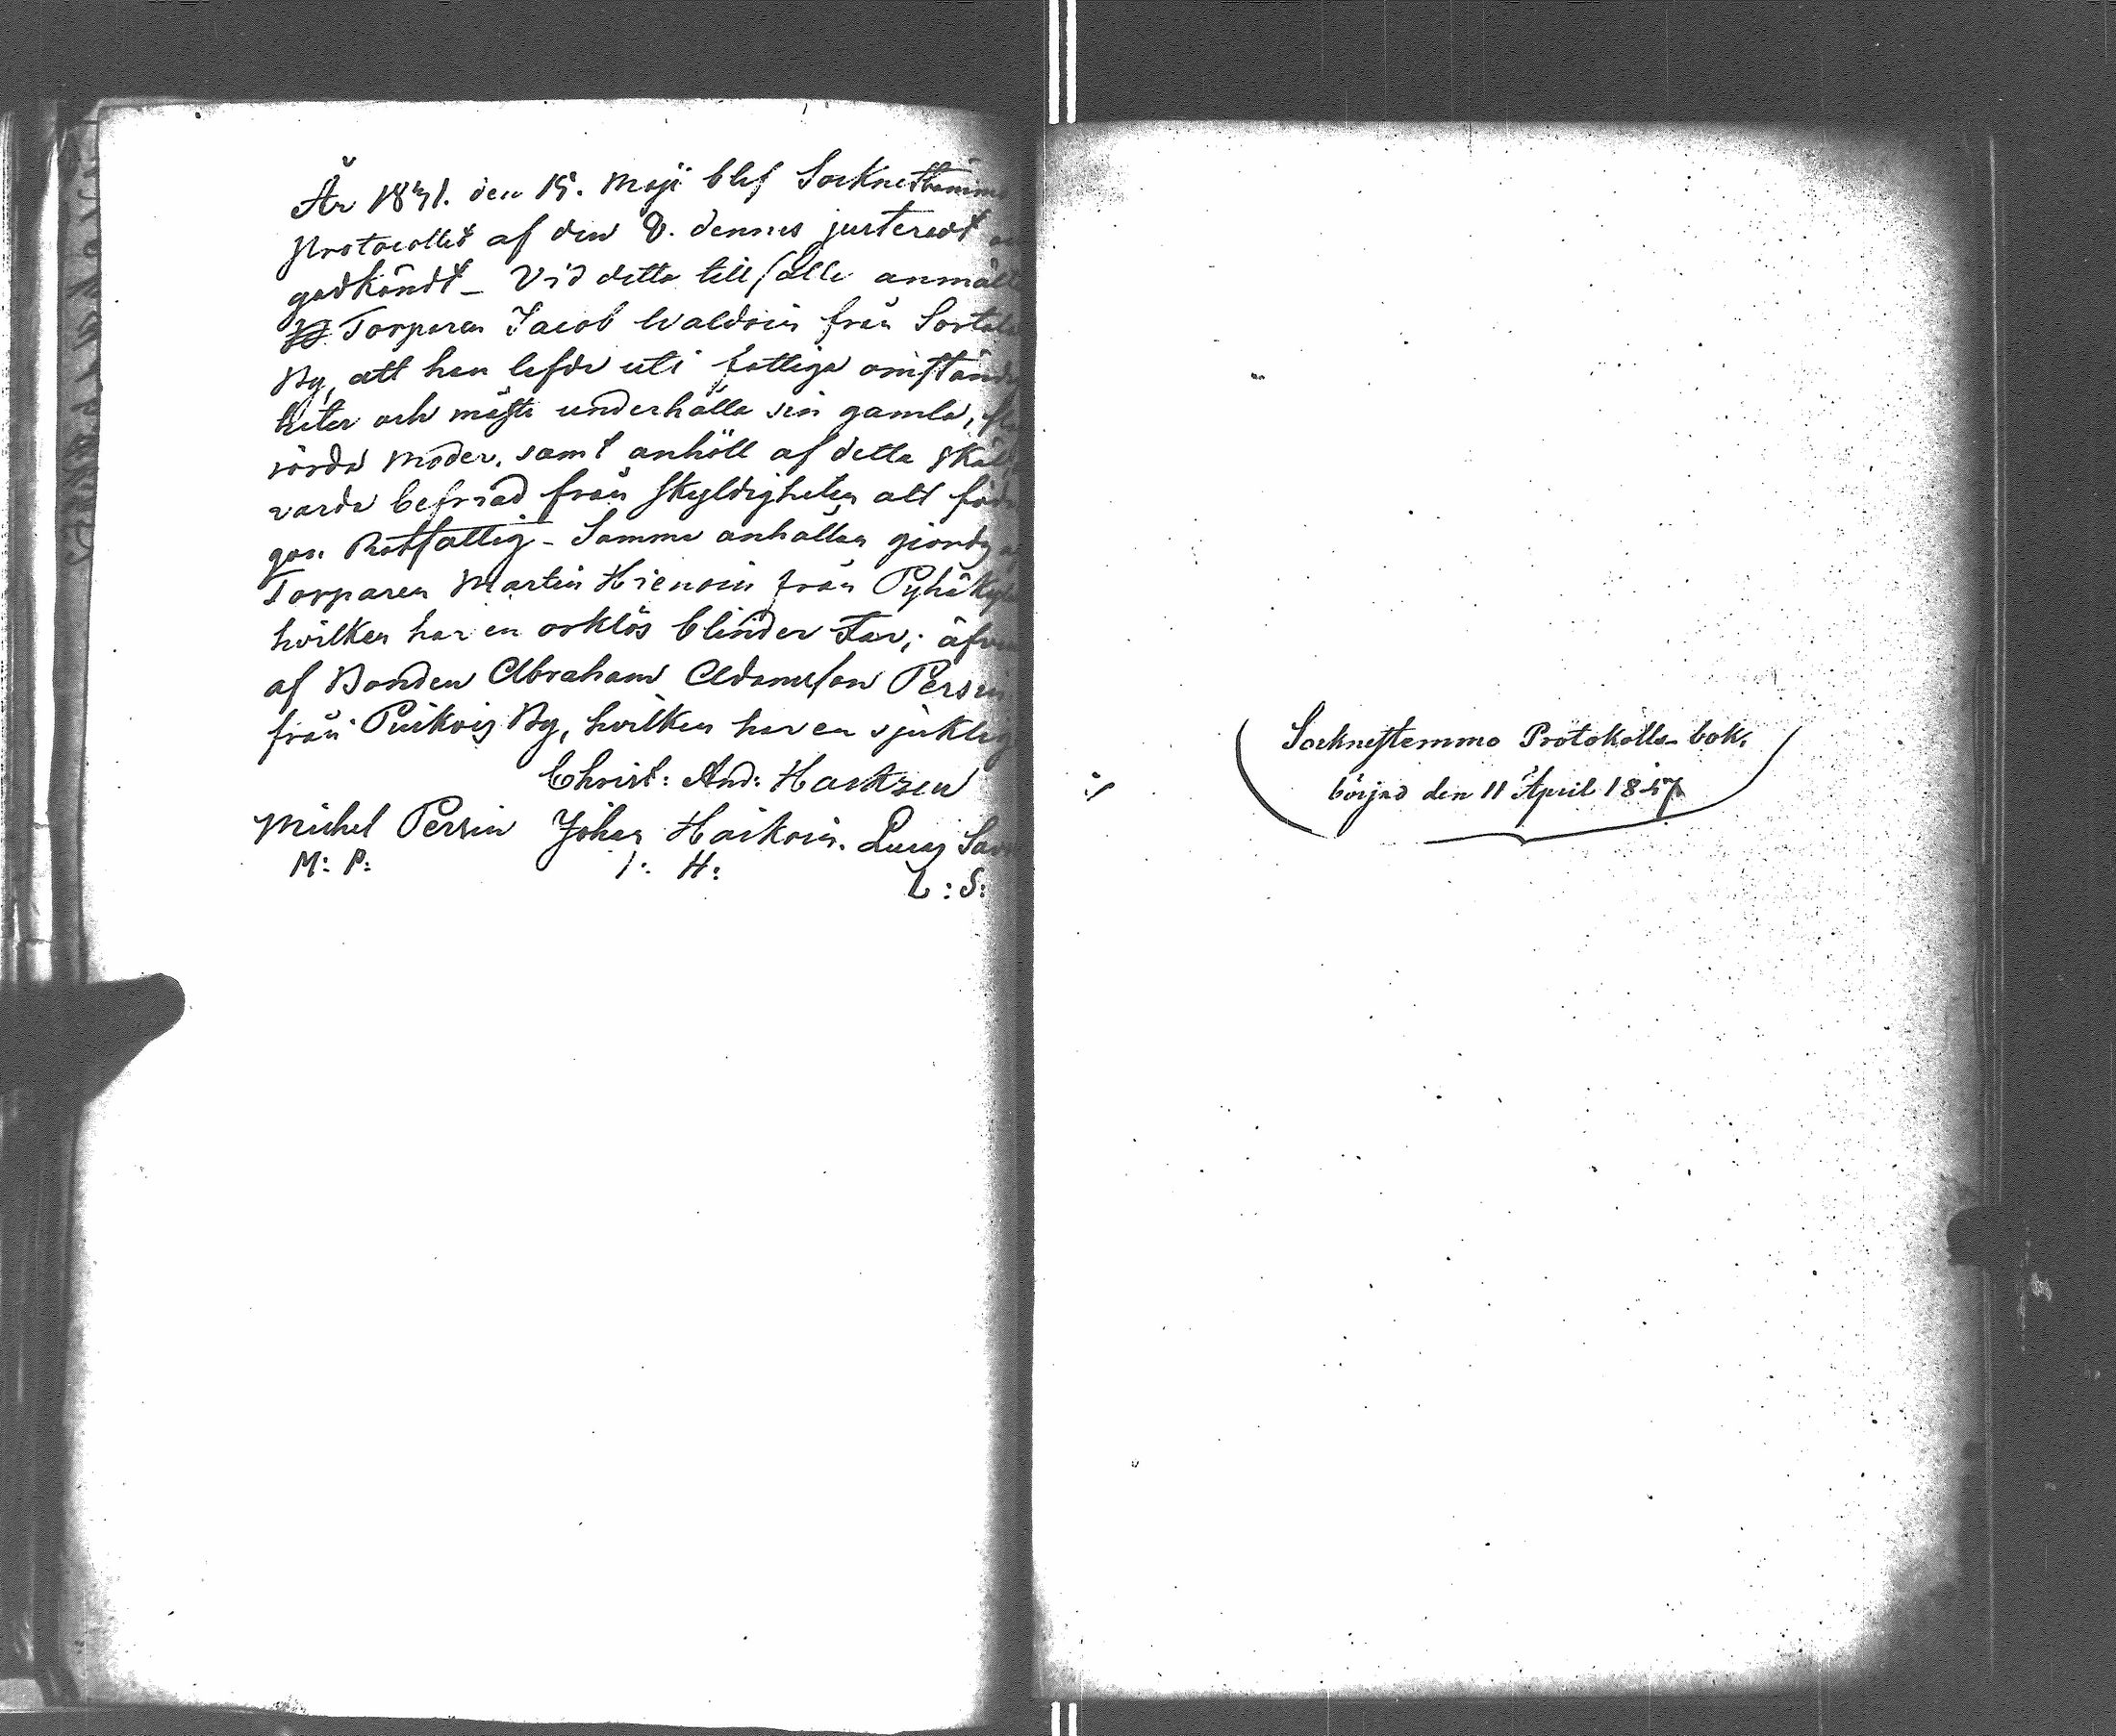 År 1851. den 15. Maji blef Socknestämme
Protocollet af den 8. dennes justeradt
godkändt_ Vid detta tillfälle anmälte
Torparen Jacob Waldoin från Sortala
By, att han lefde uti fattiga omständig
heter och måste underhålla sin gamla,
rörda moder, samt anhöll af detta skäl
varda befriad från skyldigheten att föda
gon Rotfattig_ Samma anhållan giordes
Torparen Martin Hienoin från Pyhäkylä
hvilken har en orklös blinder Far; äfven
af Bonden Abraham Adamsson Persin
från Puikois By, hvilken har en sjuklig
Christ: And: Harkzen
Michel Persin Johan Haikoin. Lucas
M: P: J: H: L: S:
Socknestemmo Protokolls-bok,
börjad den 11 April 1847